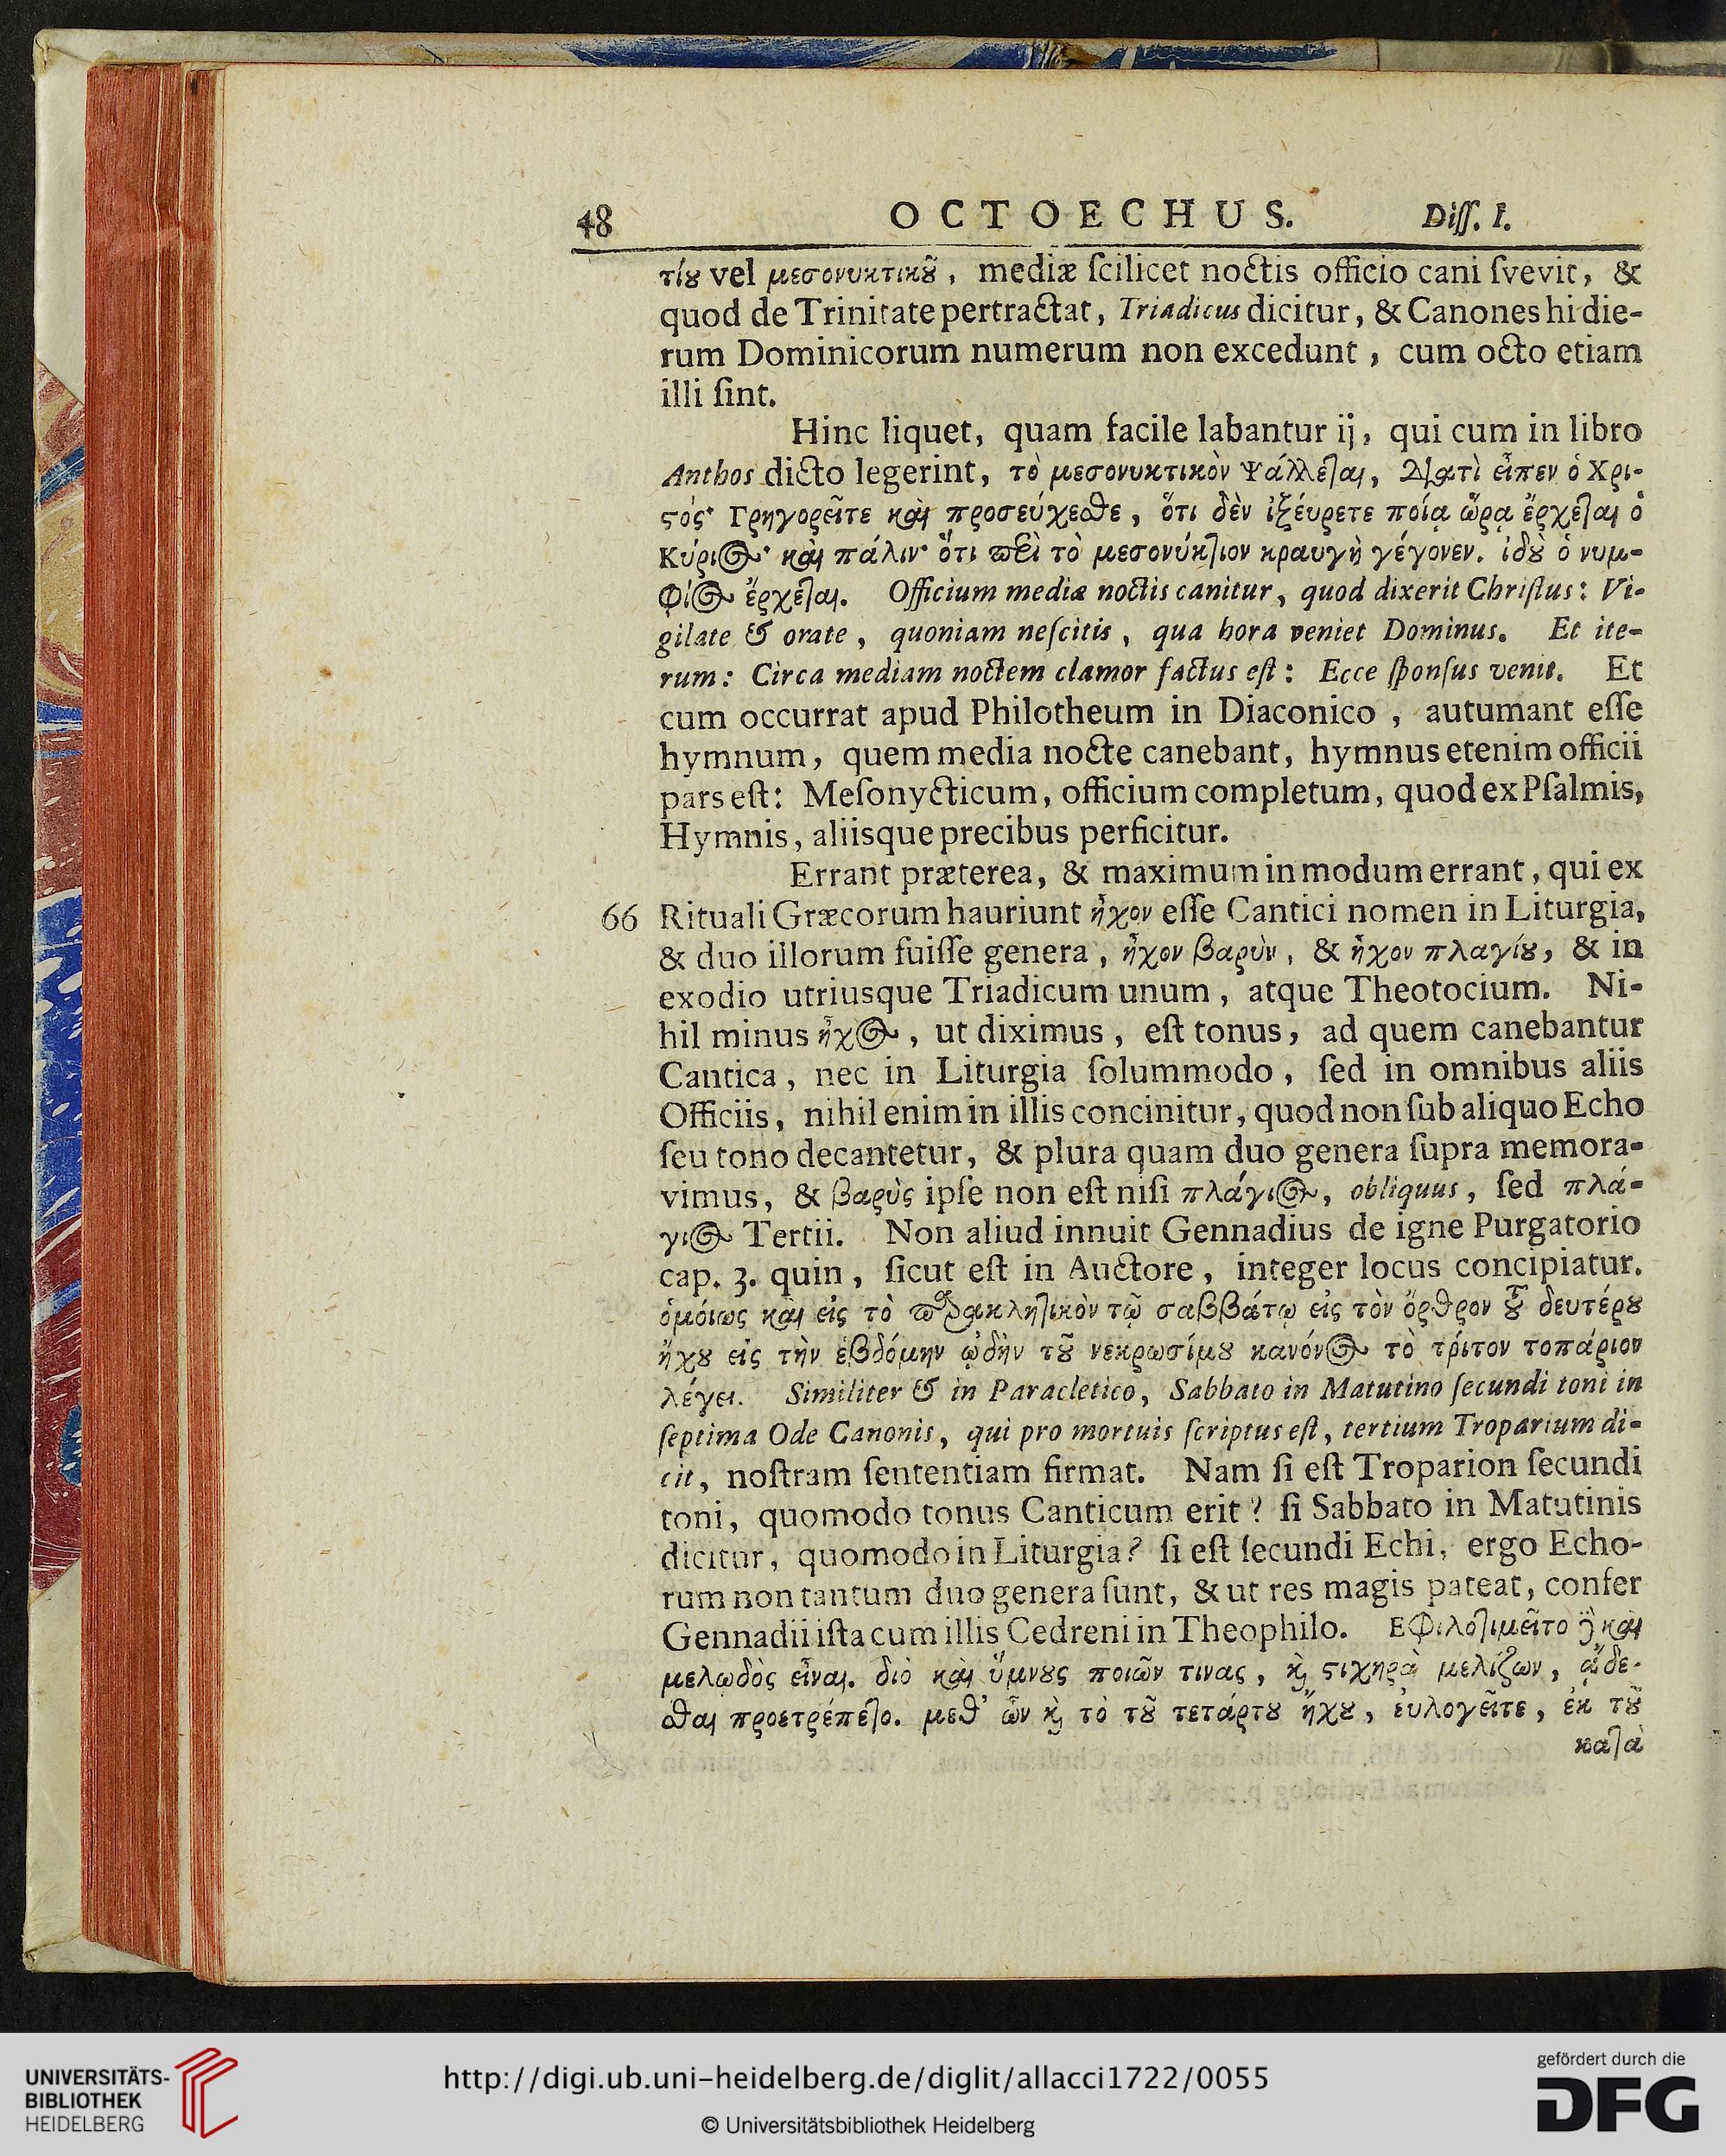 48 OCTOECHUS. Diſſ. I.
τίȣ vel μεσονυκτικȣ͂, mediæ ſcilicet noctis officio cani ſvevit, &
quod de Trinitate pertractat, Triadicus dicitur, & Canones hi die-
rum Dominicorum numerum non excedunt, cum octo etiam
illi ſint.
Hinc liquet, quam facile labantur ij, qui cum in libro
Anthos dicto legerint, τὸ μεσονυκτικὸν Ψάλλεται, διατὶ εἶπεν ὁ Χρι-
ϛός· Γρηγορεῖτε καὶ προσεύχεσθε, ὅτι δὲν ἰξέυρετε ποίᾳ ὥρᾳ ἔρχεται ὁ
Κύριος· καὶ πάλιν· ὅτι ϖερὶ τὸ μεσονύκτιον κραυγὴ γέγονεν. ἰδȣ̀ ὁ νυμ-
φίος ἔρχεται. Officium mediæ noctis canitur, quod dixerit Chriſtus: Vi-
gilate & orate, quoniam neſcitis, qua hora veniet Dominus. Et ite-
rum: Circa mediam noctem clamor factus eſt: Ecce ſponſus venit. Et
cum occurrat apud Philotheum in Diaconico, autumant eſſe
hymnum, quem media nocte canebant, hymnus etenim officii
pars eſt: Meſonycticum, officium completum, quod ex Pſalmis,
Hymnis, aliisque precibus perficitur.
Errant præterea, & maximum in modum errant, qui ex
66 Rituali Græcorum hauriunt ἦχον eſſe Cantici nomen in Liturgia,
& duo illorum fuiſſe genera, ἦχον βαρὺν, & ἦχον πλαγίȣ, & in
exodio utriusque Triadicum unum, atque Theotocium. Ni-
hil minus ἦχος, ut diximus, eſt tonus, ad quem canebantur
Cantica, nec in Liturgia ſolummodo, ſed in omnibus aliis
Officiis, nihil enim in illis concinitur, quod non ſub aliquo Echo
ſeu tono decantetur, & plura quam duo genera ſupra memora-
vimus, & βαρὺς ipſe non eſt niſi πλάγιος, obliquus, ſed πλά-
γιος Tertii. Non aliud innuit Gennadius de igne Purgatorio
cap. 3. quin, ſicut eſt in Auctore, integer locus concipiatur.
ὁμόιως καὶ εἰς τὸ ϖαρακλητικὸν τῷ σαββάτῳ εἰς τὸν ὄρθρον τȣ͂ δευτέρȣ
ἤχȣ εἰς τὴν ἑβδόμην ᾠδὴν τȣ͂ νεκρωσίμȣ κανόνος τὸ τρίτον τοπάριον
λέγει. Similiter & in Paracletico, Sabbato in Matutino ſecundi toni in
ſeptima Ode Canonis, qui pro mortuis ſcriptus eſt, tertium Troparium di-
cit, noſtram ſententiam firmat. Nam ſi eſt Troparion ſecundi
toni, quomodo tonus Canticum erit? ſi Sabbato in Matutinis
dicitur, quomodo in Liturgia? ſi eſt ſecundi Echi, ergo Echo-
rum non tantum duo genera ſunt, & ut res magis pateat, confer
Gennadii iſta cum illis Cedreni in Theophilo. Εφιλοτιμεῖτο δὲ καὶ
μελωδὸς εἶναι. διὸ καὶ ὕμνȣς ποιῶν τινας, ϗ̀ ϛιχηρὰ μελίζων, ᾄδε-
σθαι προετρέπετο. μεθ' ὧν ϗ̀ τὸ τȣ͂ τετάρτȣ ἤχȣ, ἐυλογεῖτε, ἐκ τȣ͂
κατὰ
UNIVERSITÄTS-
BIBLIOTHEK
HEIDELBERG
http://digi.ub.uni-heidelberg.de/diglit/allacci1722/0055
© Universitätsbibliothek Heidelberg
gefördert durch die
DFG